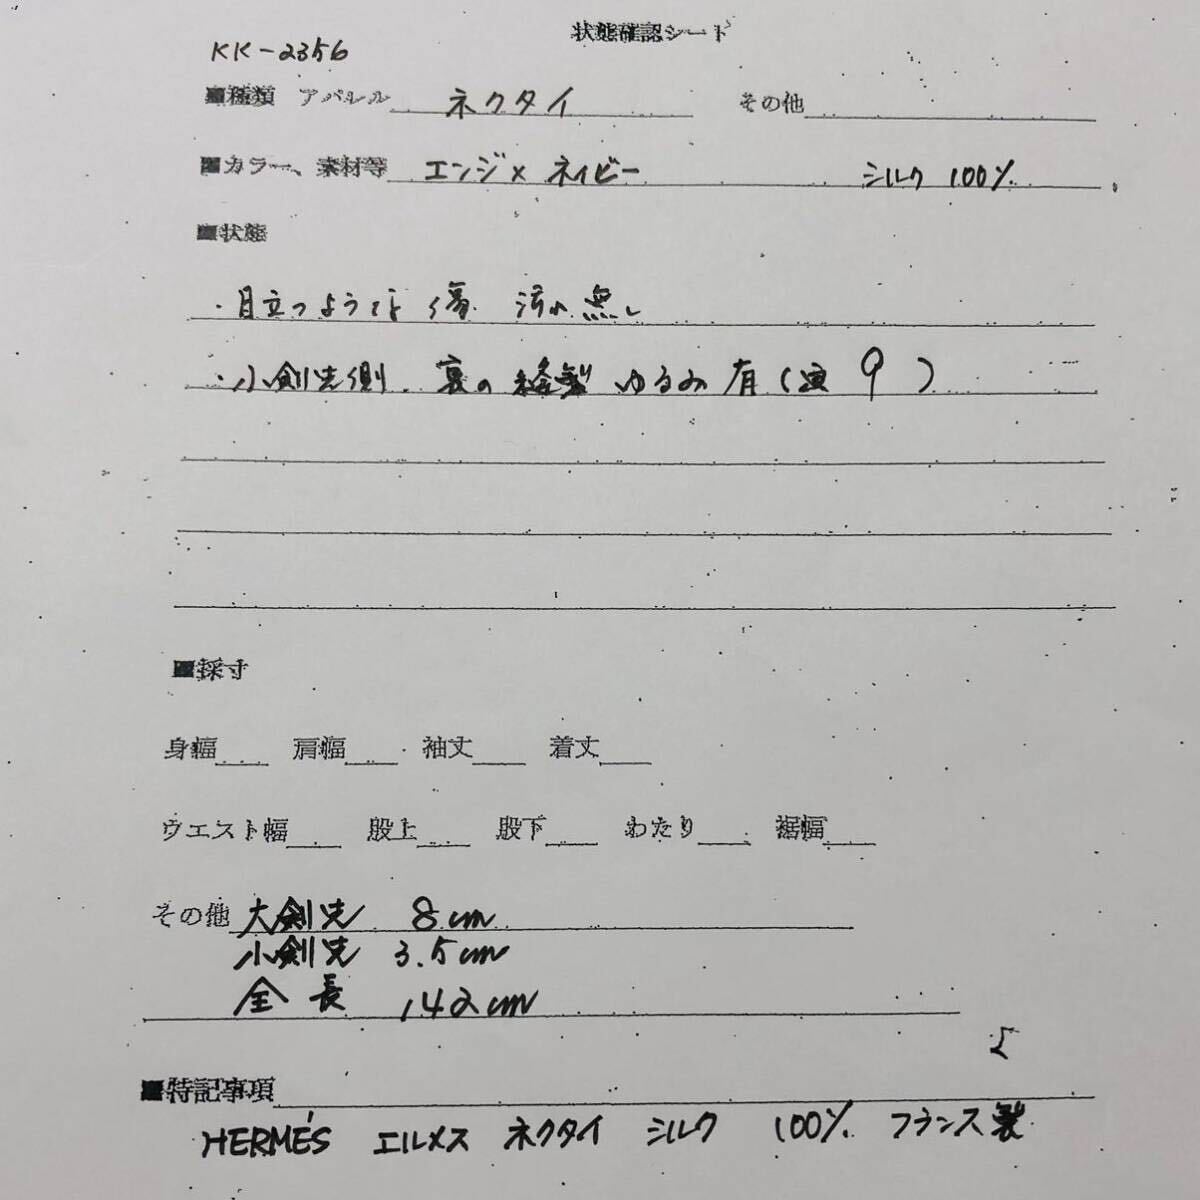 状態確認シート
KK-2356
■種類 アパレル ネクタイ その他
■カラー、素材等 エンジ×ネイビー シルク 100%
■状態
・目立つような傷、汚れ無し
・小剣先側、裏の縫製ゆるみ有(画9)
■採寸
身幅 肩幅 袖丈 着丈
ウエスト幅 股上 股下 わたり 裾幅
その他 大剣先 8cm
小剣先 3.5cm
全長 142cm
■特記事項
HERMÈS エルメス ネクタイ シルク 100% フランス製